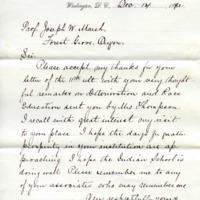 Washington, D. C., Dec. 14, 1880.
Prof. Joseph W. Marsh,
Forest Grove, Oregon
Sir
Please accept my thanks for your
letter of the 11th ult with your very thought
ful remarks on Deterioration and Race
Education sent you by Mrs Thompson
I recall with great interest my visit
to your place I hope the days for mater
prosperity in your institution are ap
proaching I hope the Indian School is
doing well Please remember me to any
of your associates who may remember me.
Very respectfully yours